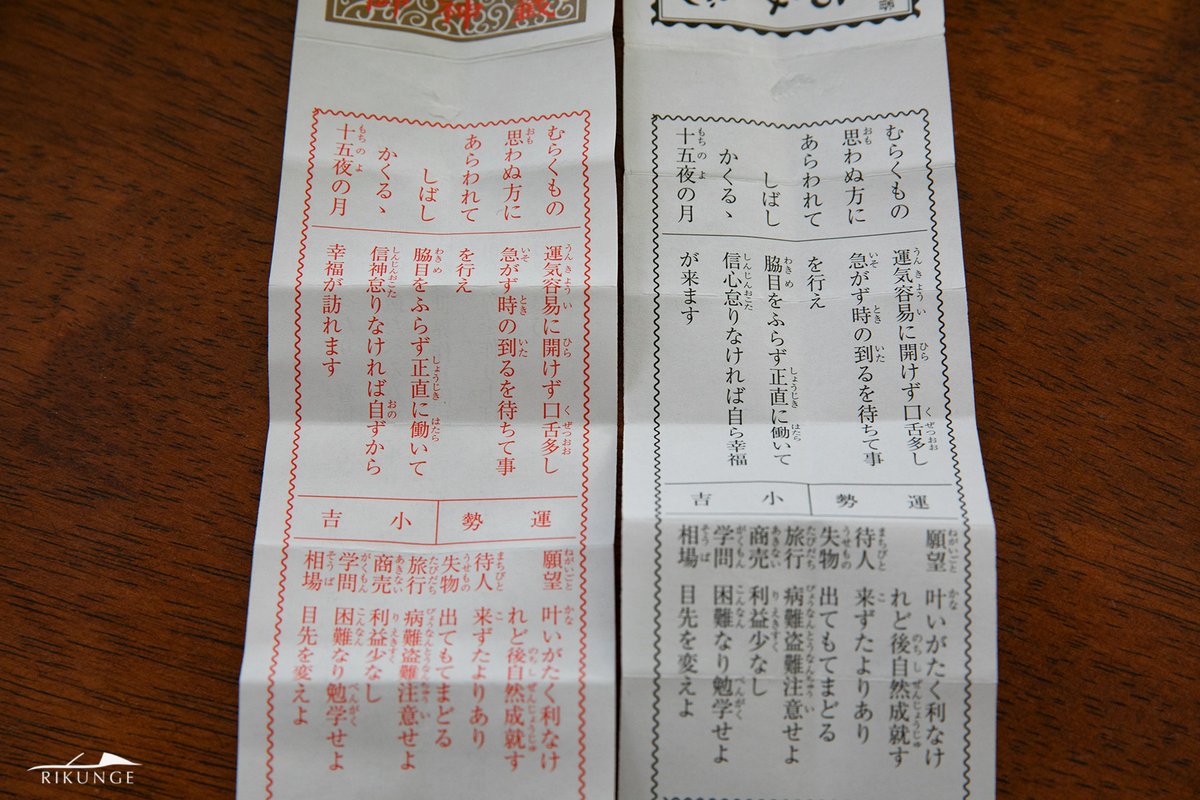 御神籤
むらくもの
思わぬ方に
あらわれて
しばし
かくるゝ
十五夜の月
運気容易に開けず口舌多し
急がず時の到るを待ちて事
を行え
脇目をふらず正直に働いて
信神怠りなければ自ずから
幸福が訪れます
運勢 小吉
願望 叶いがたく利なけ
れど後自然成就す
待人 来ずたよりあり
失物 出てもてまどる
旅行 病難盗難注意せよ
商売 利益少なし
学問 困難なり勉学せよ
相場 目先を変えよ
むらくもの
思わぬ方に
あらわれて
しばし
かくるゝ
十五夜の月
運気容易に開けず口舌多し
急がず時の到るを待ちて事
を行え
脇目をふらず正直に働いて
信心怠りなければ自ら幸福
が来ます
運勢 小吉
願望 叶いがたく利なけ
れど後自然成就す
待人 来ずたよりあり
失物 出てもてまどる
旅行 病難盗難注意せよ
商売 利益少なし
学問 困難なり勉学せよ
相場 目先を変えよ
RIKUNGE